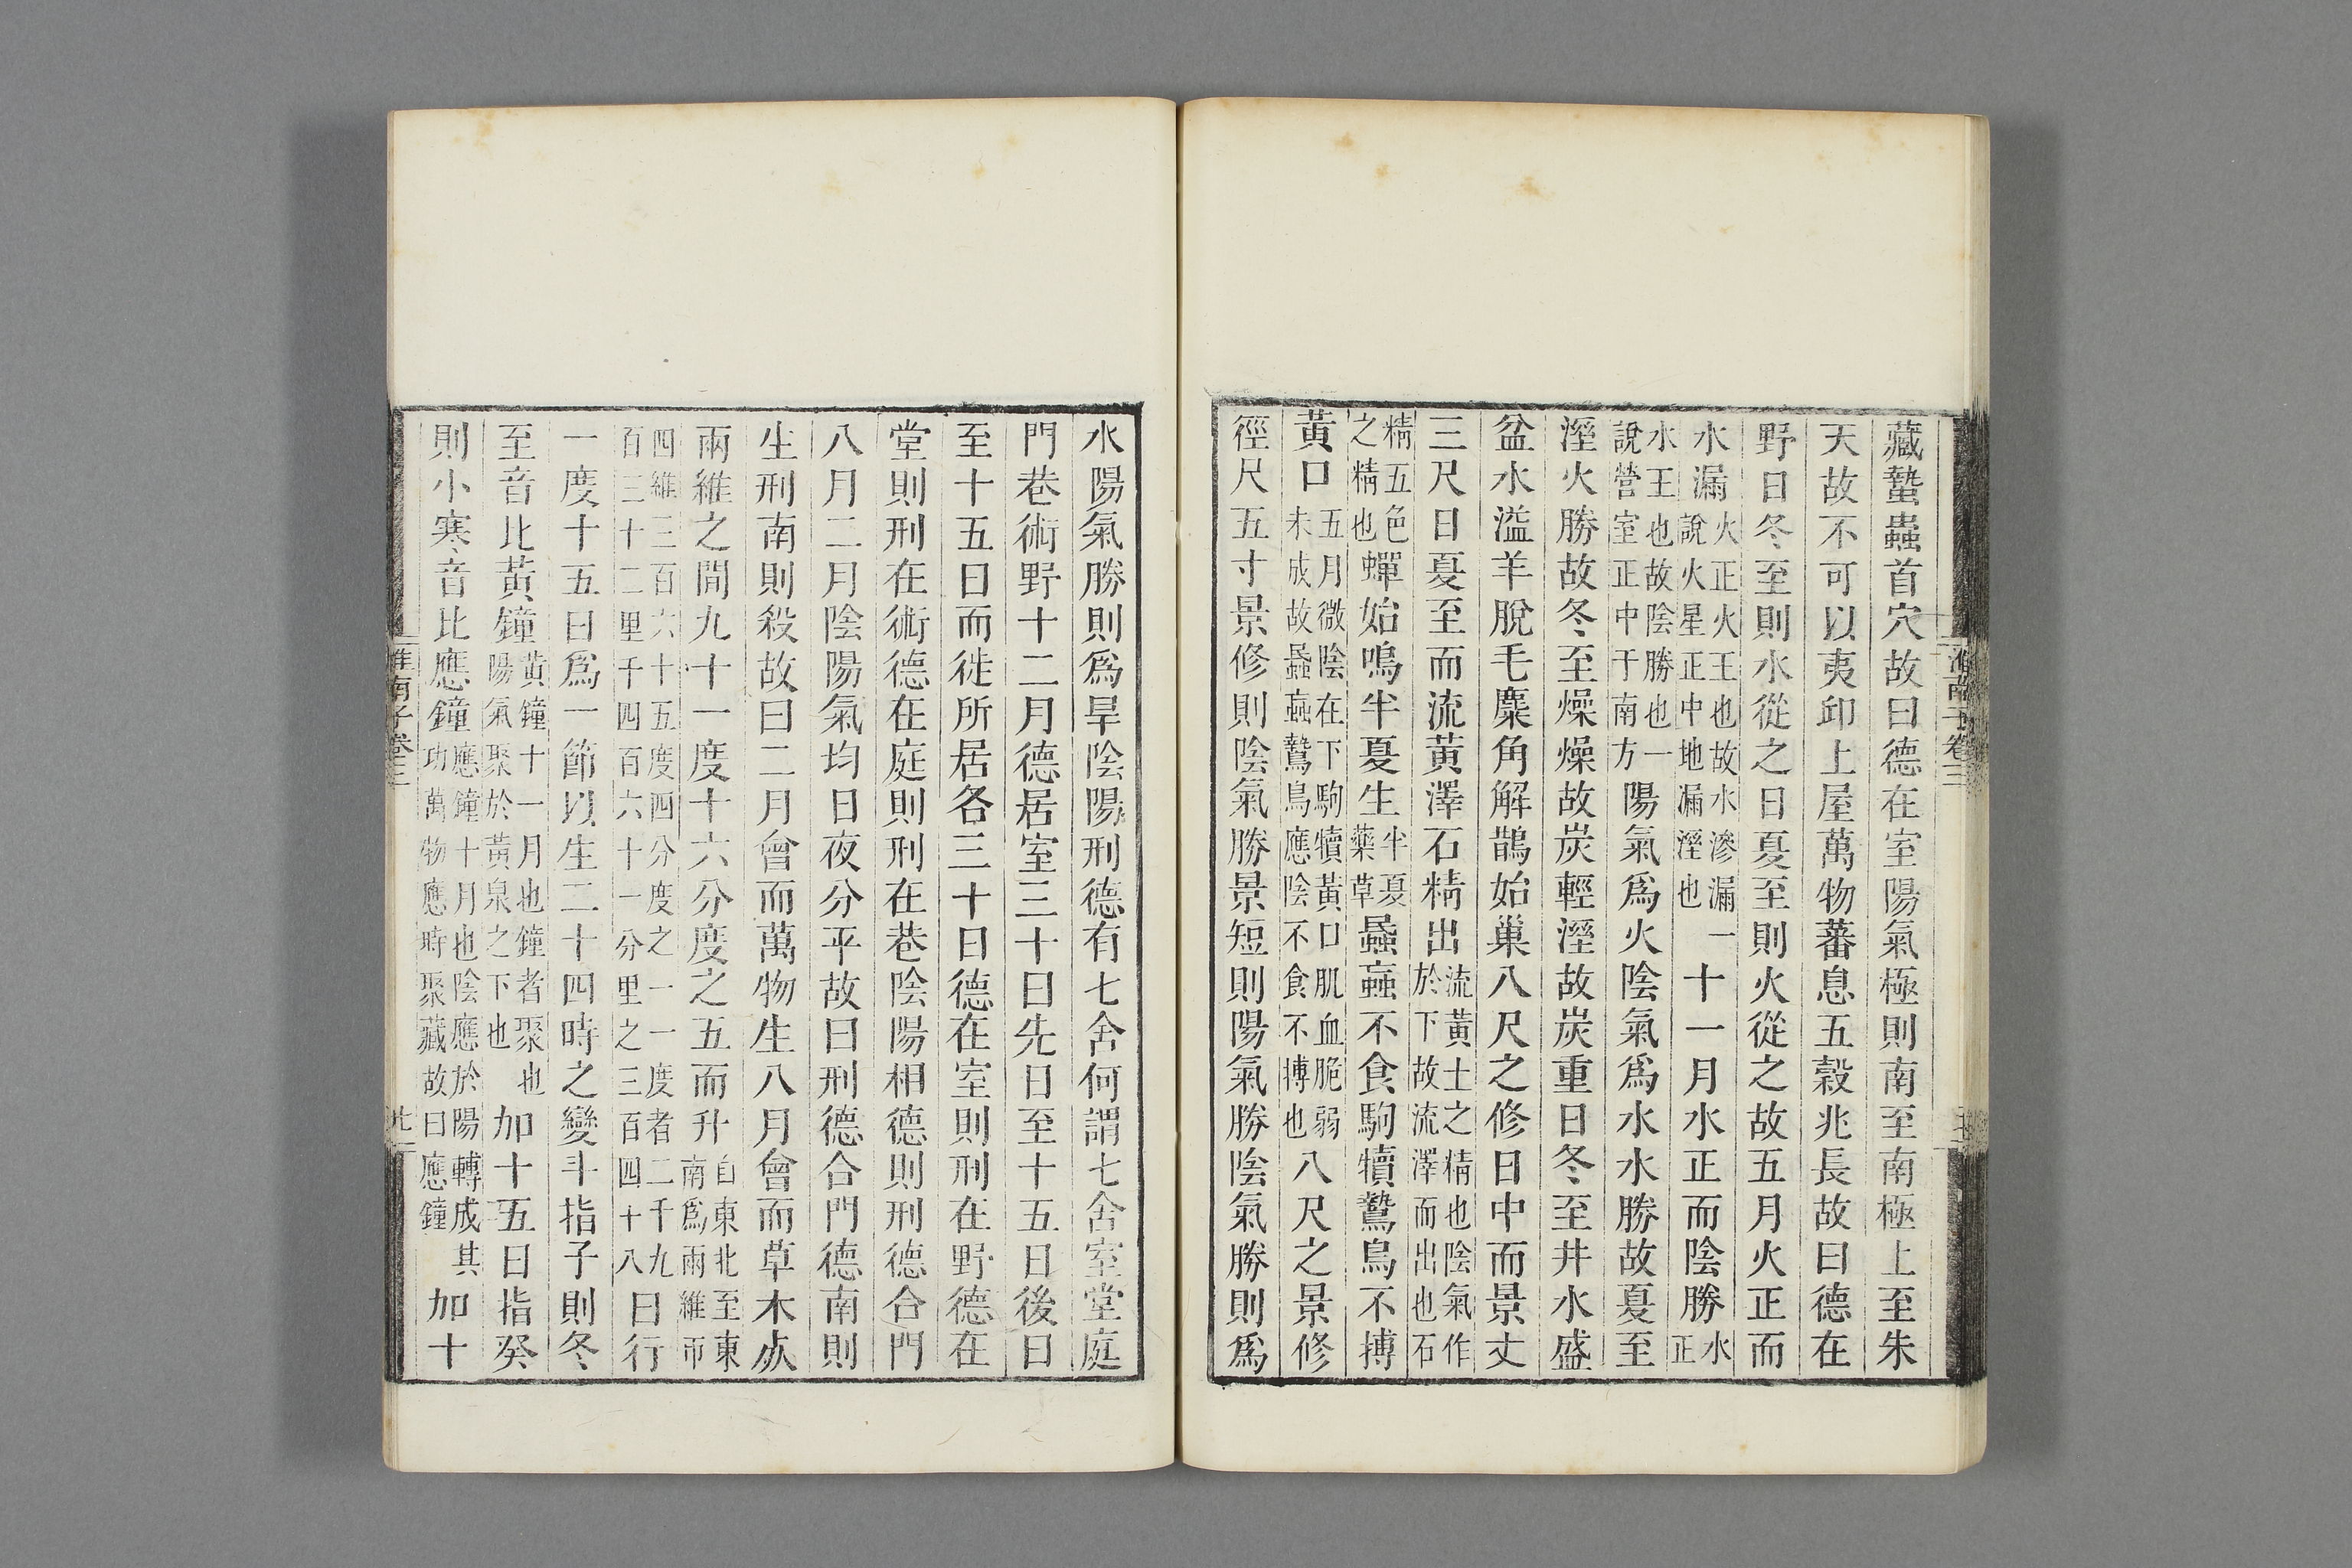 藏蟄蟲首穴故曰德在室陽氣極則南至南極上至朱
天故不可以夷卭上屋萬物蕃息五穀兆長故曰德在
野日冬至則水從之日夏至則火從之故五月火正而
水漏火正火王也故水滲漏說火星正中地漏溼也一十一月水正而陰勝水正
水王也故陰勝也一說營室正中于南方陽氣爲火陰氣爲水水勝故夏至
溼火勝故冬至燥燥故炭輕溼故炭重日冬至井水盛
盆水溢羊脫毛麋角解鵲始巢八尺之修日中而景丈
三尺日夏至而流黃澤石精出流黃土之精也陰氣作於下故流澤而出也石
精五色之精也蟬始鳴半夏生半夏藥草蟁蝱不食駒犢鷙鳥不搏
黃口五月微陰在下駒犢黃口肌血脆弱未成故蟁蝱鷙鳥應陰不食不搏也八尺之景修
徑尺五寸景修則陰氣勝景短則陽氣勝陰氣勝則爲
水陽氣勝則爲旱陰陽刑德有七舍何謂七舍室堂庭
門巷術野十二月德居室三十日先日至十五日後日
至十五日而徙所居各三十日德在室則刑在野德在
堂則刑在術德在庭則刑在巷陰陽相德則刑德合門
八月二月陰陽氣均日夜分平故曰刑德合門德南則
生刑南則殺故曰二月會而萬物生八月會而草木死
兩維之間九十一度十六分度之五而升自東北至東南爲兩維帀
四維三百六十五度四分度之一一度者二千九百三十二里千四百六十一分里之三百四十八日行
一度十五日爲一節以生二十四時之變斗指子則冬
至音比黃鐘黃鐘十一月也鐘者聚也陽氣聚於黃泉之下也加十五日指癸
則小寒音比應鐘應鐘十月也陰應於陽轉成其功萬物應時聚藏故曰應鐘加十
淮南子卷三